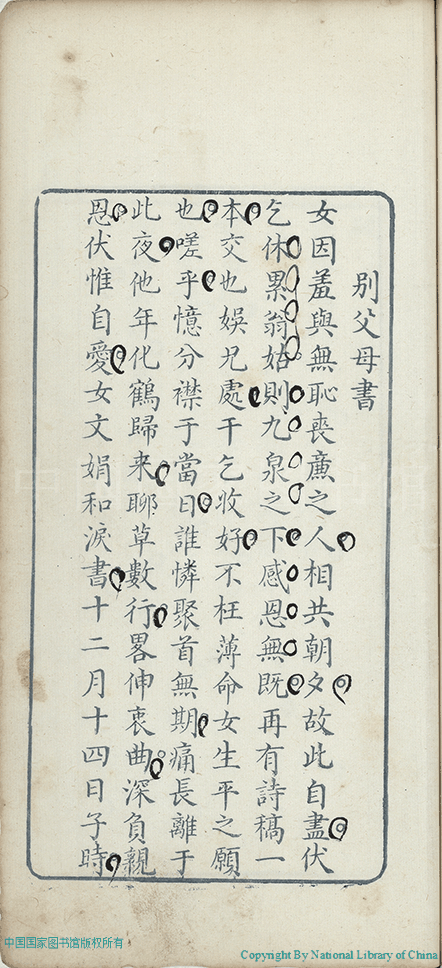 別父母書
女因羞與無恥喪亷之人相共朝夕故此自盡伏
乞休累翁姑則九泉之下感恩無既再有詩稿一
本交也娛兄處千乞收好不枉薄命女生平之願
也嗟乎憶分襟于當日誰憐聚首無期痛長離于
此夜他年化鶴歸來聊草數行畧伸衷曲深負親
恩伏惟自愛女文娟和淚書十二月十四日子時
中国国家图书馆版权所有
Copyright By National Library of China